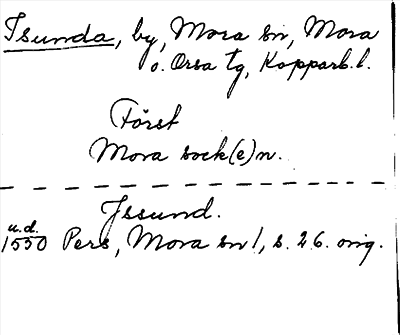 Isunda, by, Mora sn, Mora
o. Orsa tg, Kopparb. l.
Först
Mora sock(e)n.
Jssund.
u.d.
1550 Pers, Mora sn 1, s. 26. orig.